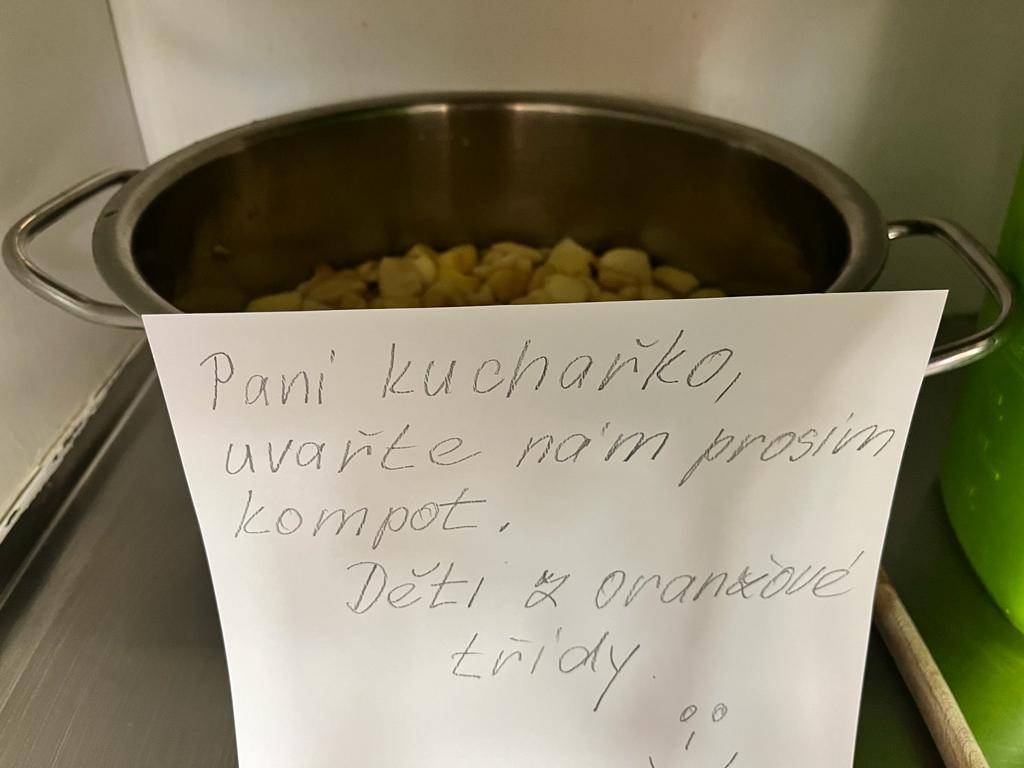 Paní kuchařko,
uvařte nám prosím
kompot.
Děti z oranžové
třídy.